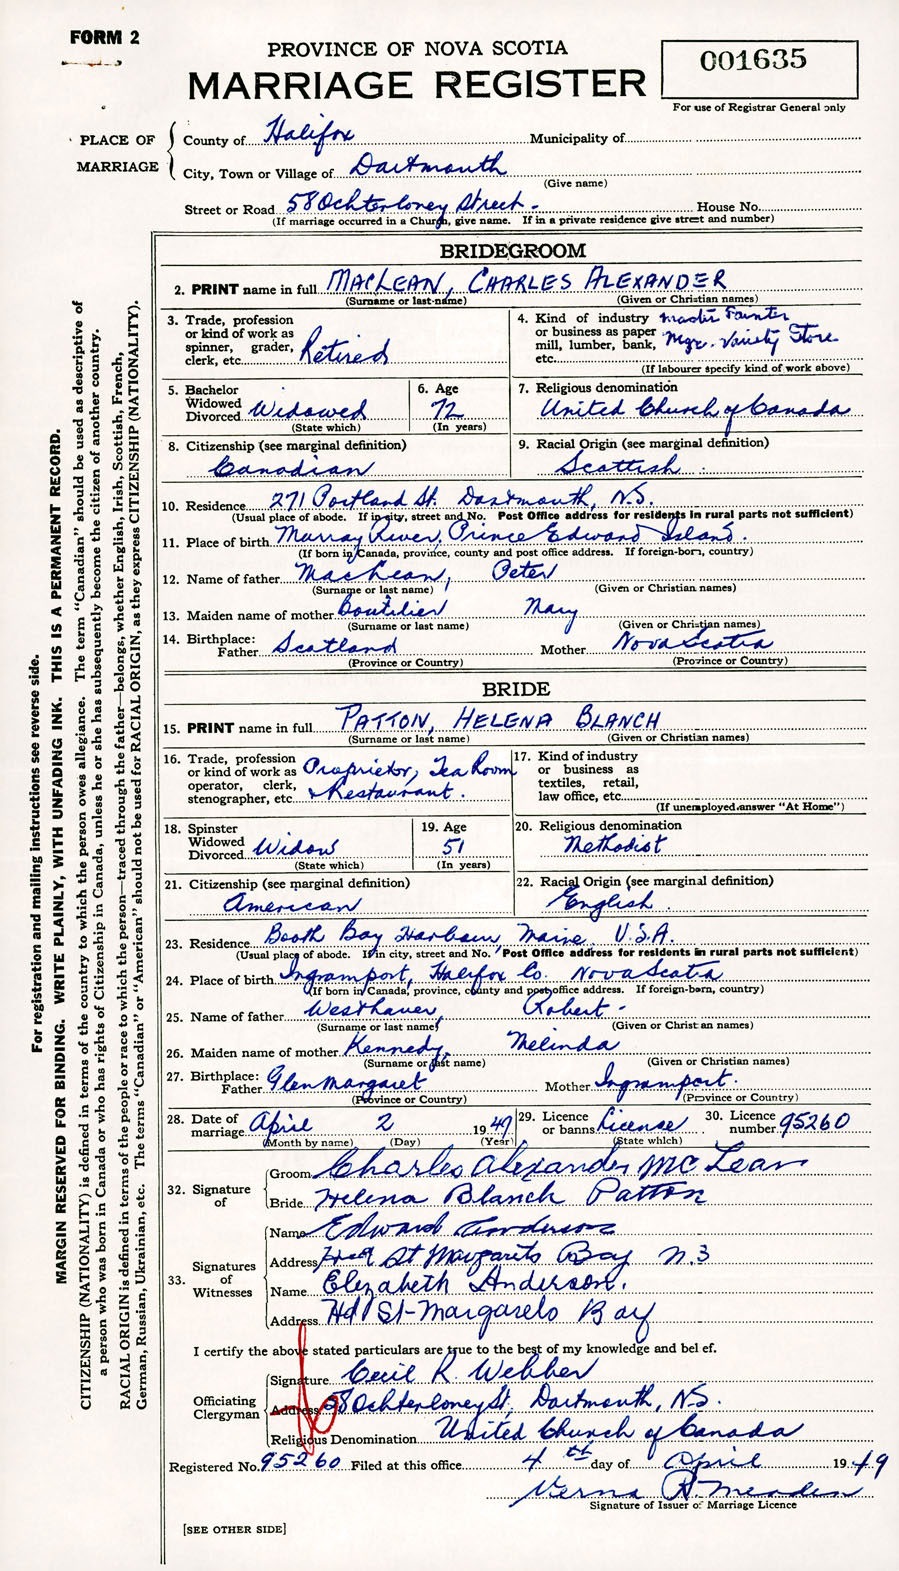 FORM 2
PROVINCE OF NOVA SCOTIA
MARRIAGE REGISTER
001635
For use of Registrar General only
PLACE OF MARRIAGE
County of Halifax Municipality of
City, Town or Village of Dartmouth
(Give name)
Street or Road 58 Ochterloney Street - House No.
(If marriage occurred in a Church, give name. If in a private residence give street and number)
BRIDEGROOM
2. PRINT name in full MACLEAN, CHARLES ALEXANDER
(Surname or last name) (Given or Christian names)
3. Trade, profession or kind of work as spinner, grader, clerk, etc. Retired
4. Kind of industry or business as paper mill, lumber, bank, etc. Master Painter Mgr. Variety Store
(If labourer specify kind of work above)
5. Bachelor Widowed Divorced Widowed
(State which)
6. Age 72
(In years)
7. Religious denomination
United Church of Canada
8. Citizenship (see marginal definition)
Canadian
9. Racial Origin (see marginal definition)
Scottish
10. Residence 271 Portland St. Dartmouth, N.S.
(Usual place of abode. If in city, street and No. Post Office address for residents in rural parts not sufficient)
11. Place of birth Murray River, Prince Edward Island.
(If born in Canada, province, county and post office address. If foreign-born, country)
12. Name of father MacLean, Peter
(Surname or last name) (Given or Christian names)
13. Maiden name of mother Boutilier Mary
(Surname or last name) (Given or Christian names)
14. Birthplace: Father Scotland Mother Nova Scotia
(Province or Country) (Province or Country)
BRIDE
15. PRINT name in full PATTON, HELENA BLANCH
(Surname or last name) (Given or Christian names)
16. Trade, profession or kind of work as operator, clerk, stenographer, etc. Proprietor, Tea Room & Restaurant.
17. Kind of industry or business as textiles, retail, law office, etc.
(If unemployed answer "At Home")
18. Spinster Widowed Divorced Widow
(State which)
19. Age 51
(In years)
20. Religious denomination
Methodist
21. Citizenship (see marginal definition)
American
22. Racial Origin (see marginal definition)
English.
23. Residence Booth Bay Harbour, Maine, U.S.A.
(Usual place of abode. If in city, street and No. Post Office address for residents in rural parts not sufficient)
24. Place of birth Ingramport, Halifax Co. Nova Scotia
(If born in Canada, province, county and post office address. If foreign-born, country)
25. Name of father Westhaver, Robert -
(Surname or last name) (Given or Christian names)
26. Maiden name of mother Kennedy, Melinda
(Surname or last name) (Given or Christian names)
27. Birthplace: Father Glen Margaret Mother Ingramport.
(Province or Country) (Province or Country)
28. Date of marriage April 2 1949
(Month by name) (Day) (Year)
29. Licence or banns License
(State which)
30. Licence number 95260
32. Signature of
Groom Charles Alexander McLean
Bride Helena Blanch Patton
33. Signatures of Witnesses
Name Edward Anderson
Address Hd St Margarets Bay N.S
Name Elezabeth Anderson.
Address Hd St-Margarets Bay
I certify the above stated particulars are true to the best of my knowledge and belief.
Officiating Clergyman
Signature Cecil R. Webber
Address 58 Ochterloney St, Dartmouth, N.S.
Religious Denomination United Church of Canada
Registered No. 95260 Filed at this office 4th day of April 1949
Verna R. Meaden
Signature of Issuer of Marriage Licence
[SEE OTHER SIDE]
For registration and mailing instructions see reverse side.
MARGIN RESERVED FOR BINDING. WRITE PLAINLY, WITH UNFADING INK. THIS IS A PERMANENT RECORD.
CITIZENSHIP (NATIONALITY) is defined in terms of the country to which the person owes allegiance. The term "Canadian" should be used as descriptive of
a person who was born in Canada or who has rights of Citizenship in Canada, unless he or she has subsequently become the citizen of another country.
RACIAL ORIGIN is defined in terms of the people or race to which the person—traced through the father—belongs, whether English, Irish, Scottish, French,
German, Russian, Ukrainian, etc. The terms "Canadian" or "American" should not be used for RACIAL ORIGIN, as they express CITIZENSHIP (NATIONALITY).